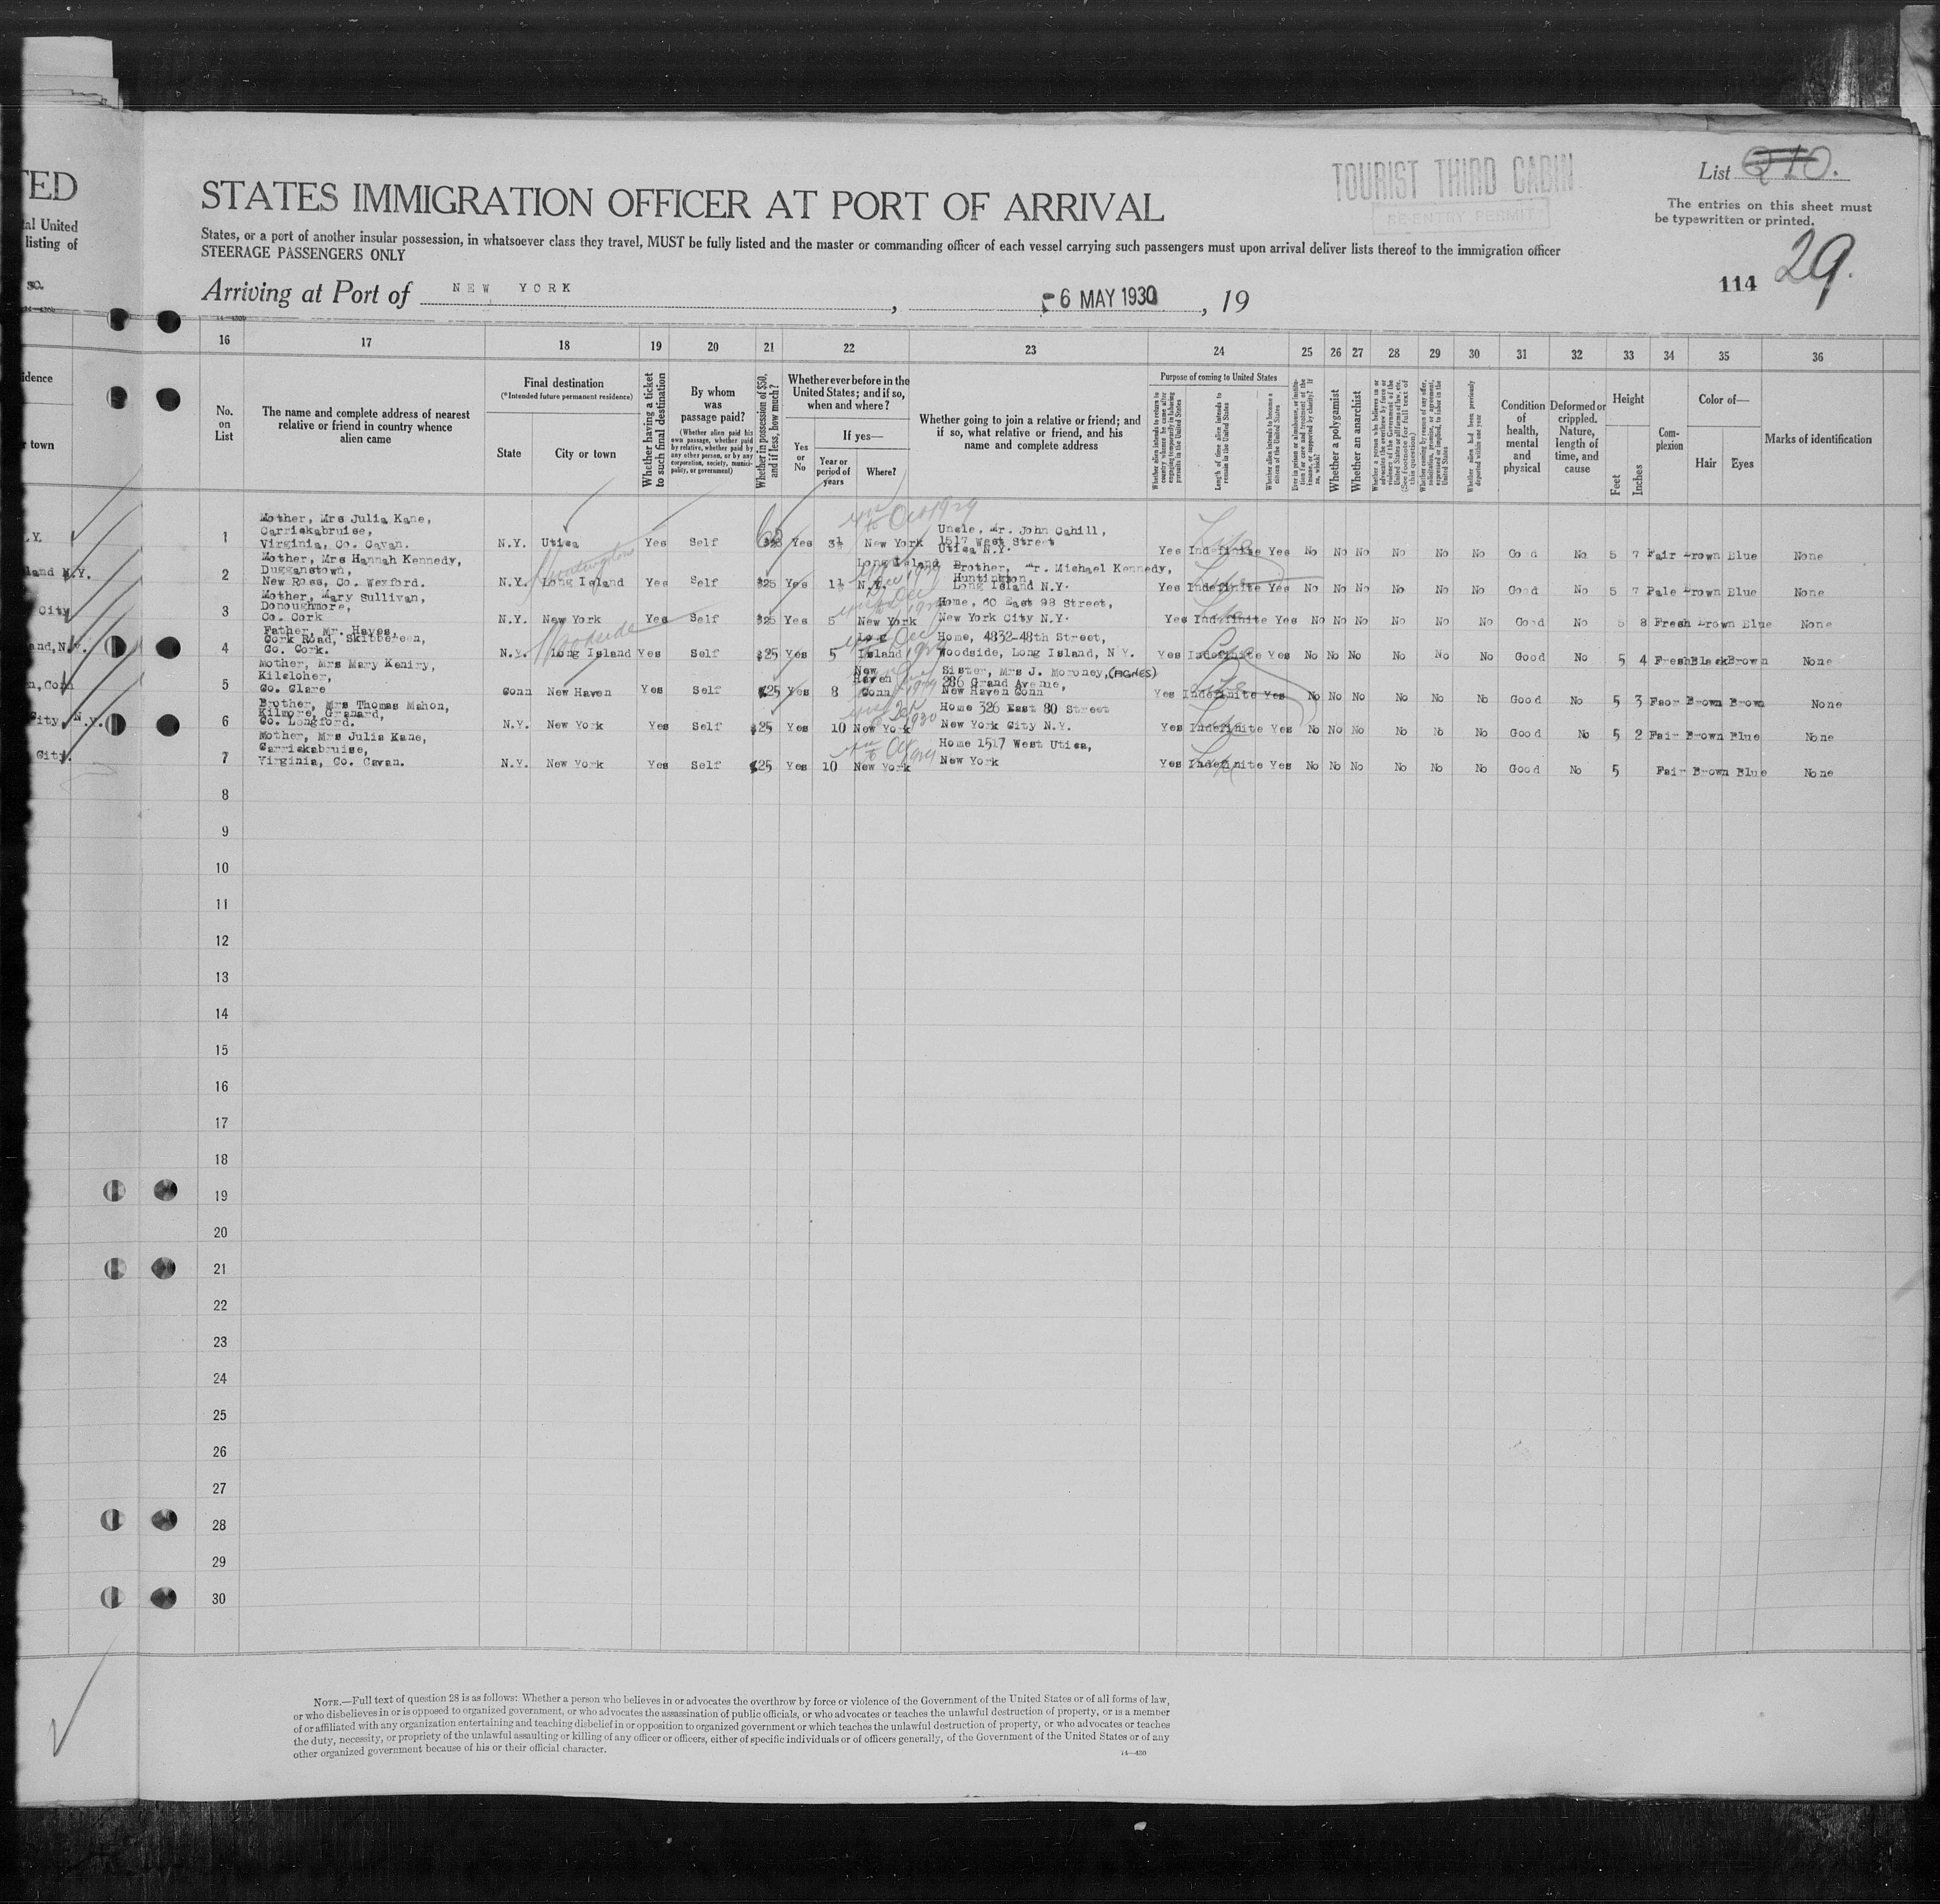 TED
tal United
listing of
TOURIST THIRD CABIN
RE-ENTRY PERMIT
List 210.
The entries on this sheet must
be typewritten or printed.
29.
114
STATES IMMIGRATION OFFICER AT PORT OF ARRIVAL
States, or a port of another insular possession, in whatsoever class they travel, MUST be fully listed and the master or commanding officer of each vessel carrying such passengers must upon arrival deliver lists thereof to the immigration officer
STEERAGE PASSENGERS ONLY
Arriving at Port of NEW YORK, 6 MAY 1930, 19
16 17 18 19 20 21 22 23 24 25 26 27 28 29 30 31 32 33 34 35 36
No. on List
The name and complete address of nearest relative or friend in country whence alien came
Final destination
(*Intended future permanent residence)
State
City or town
Whether having a ticket to such final destination
By whom was passage paid?
(Whether alien paid his own passage, whether paid by relative, whether paid by any other person, or by any corporation, society, municipality, or government)
Whether in possession of $50, and if less, how much?
Whether ever before in the United States; and if so, when and where?
Yes or No
If yes—
Year or period of years
Where?
Whether going to join a relative or friend; and if so, what relative or friend, and his name and complete address
Purpose of coming to United States
Length of time alien intends to remain in the United States
Whether alien intends to become a citizen of the United States
Whether a polygamist
Whether an anarchist
Whether alien had been previously deported within one year
Condition of health, mental and physical
Deformed or crippled. Nature, length of time, and cause
Height
Feet
Inches
Complexion
Color of—
Hair
Eyes
Marks of identification
1 Mother, Mrs Julia Kane, Carriskabruise, Virginia, Co. Cavan. N.Y. Utica Yes Self Yes 3½ New York Oct 1929 Uncle, Mr. John Cahill, 1517 West Street Utica N.Y. Yes Indefinite Yes No No No No No No Good No 5 7 Fair Brown Blue None
2 Mother, Mrs Hannah Kennedy, Dugganstown, New Ross, Co. Wexford. N.Y. Long Island Huntington Yes Self $25 Yes 1½ Long Island N.Y. Brother, Mr. Michael Kennedy, Huntington, Long Island N.Y. Yes Indefinite Yes No No No No No No Good No 5 7 Pale Brown Blue None
3 Mother, Mary Sullivan, Donoughmore, Co. Cork N.Y. New York Yes Self $25 Yes 5 New York Home, 60 East 98 Street, New York City N.Y. Yes Indefinite Yes No No No No No No Good No 5 8 Fresh Brown Blue None
4 Father, Mr. Hayes, Cork Road, Skibbereen, Co. Cork. N.Y. Long Island Woodside Yes Self $25 Yes 5 Long Island Home, 4832-48th Street, Woodside, Long Island, N Y. Yes Indefinite Yes No No No No No No Good No 5 4 Fresh Black Brown None
5 Mother, Mrs Mary Keniry, Kilcloher, Co. Clare Conn New Haven Yes Self $25 Yes 8 New Haven Conn Sister, Mrs J. Moroney, (AGNES) 286 Grand Avenue, New Haven Conn Yes Indefinite Yes No No No No No No Good No 5 3 Faor Brown Brown None
6 Brother, Mrs Thomas Mahon, Kilmore, Granard, Co. Longford. N.Y. New York Yes Self $25 Yes 10 New York Home 326 East 80 Street New York City N.Y. Yes Indefinite Yes No No No No No No Good No 5 2 Fair Brown Blue None
7 Mother, Mrs Julia Kane, Carriskabruise, Virginia, Co. Cavan. N.Y. New York Yes Self $25 Yes 10 New York Home 1517 West Utica, New York Yes Indefinite Yes No No No No No No Good No 5 Fair Brown Blue None
8
9
10
11
12
13
14
15
16
17
18
19
20
21
22
23
24
25
26
27
28
29
30
NOTE.—Full text of question 28 is as follows: Whether a person who believes in or advocates the overthrow by force or violence of the Government of the United States or of all forms of law,
or who disbelieves in or is opposed to organized government, or who advocates the assassination of public officials, or who advocates or teaches the unlawful destruction of property, or is a member
of or affiliated with any organization entertaining and teaching disbelief in or opposition to organized government or which teaches the unlawful destruction of property, or who advocates or teaches
the duty, necessity, or propriety of the unlawful assaulting or killing of any officer or officers, either of specific individuals or of officers generally, of the Government of the United States or of any
other organized government because of his or their official character.
14—430